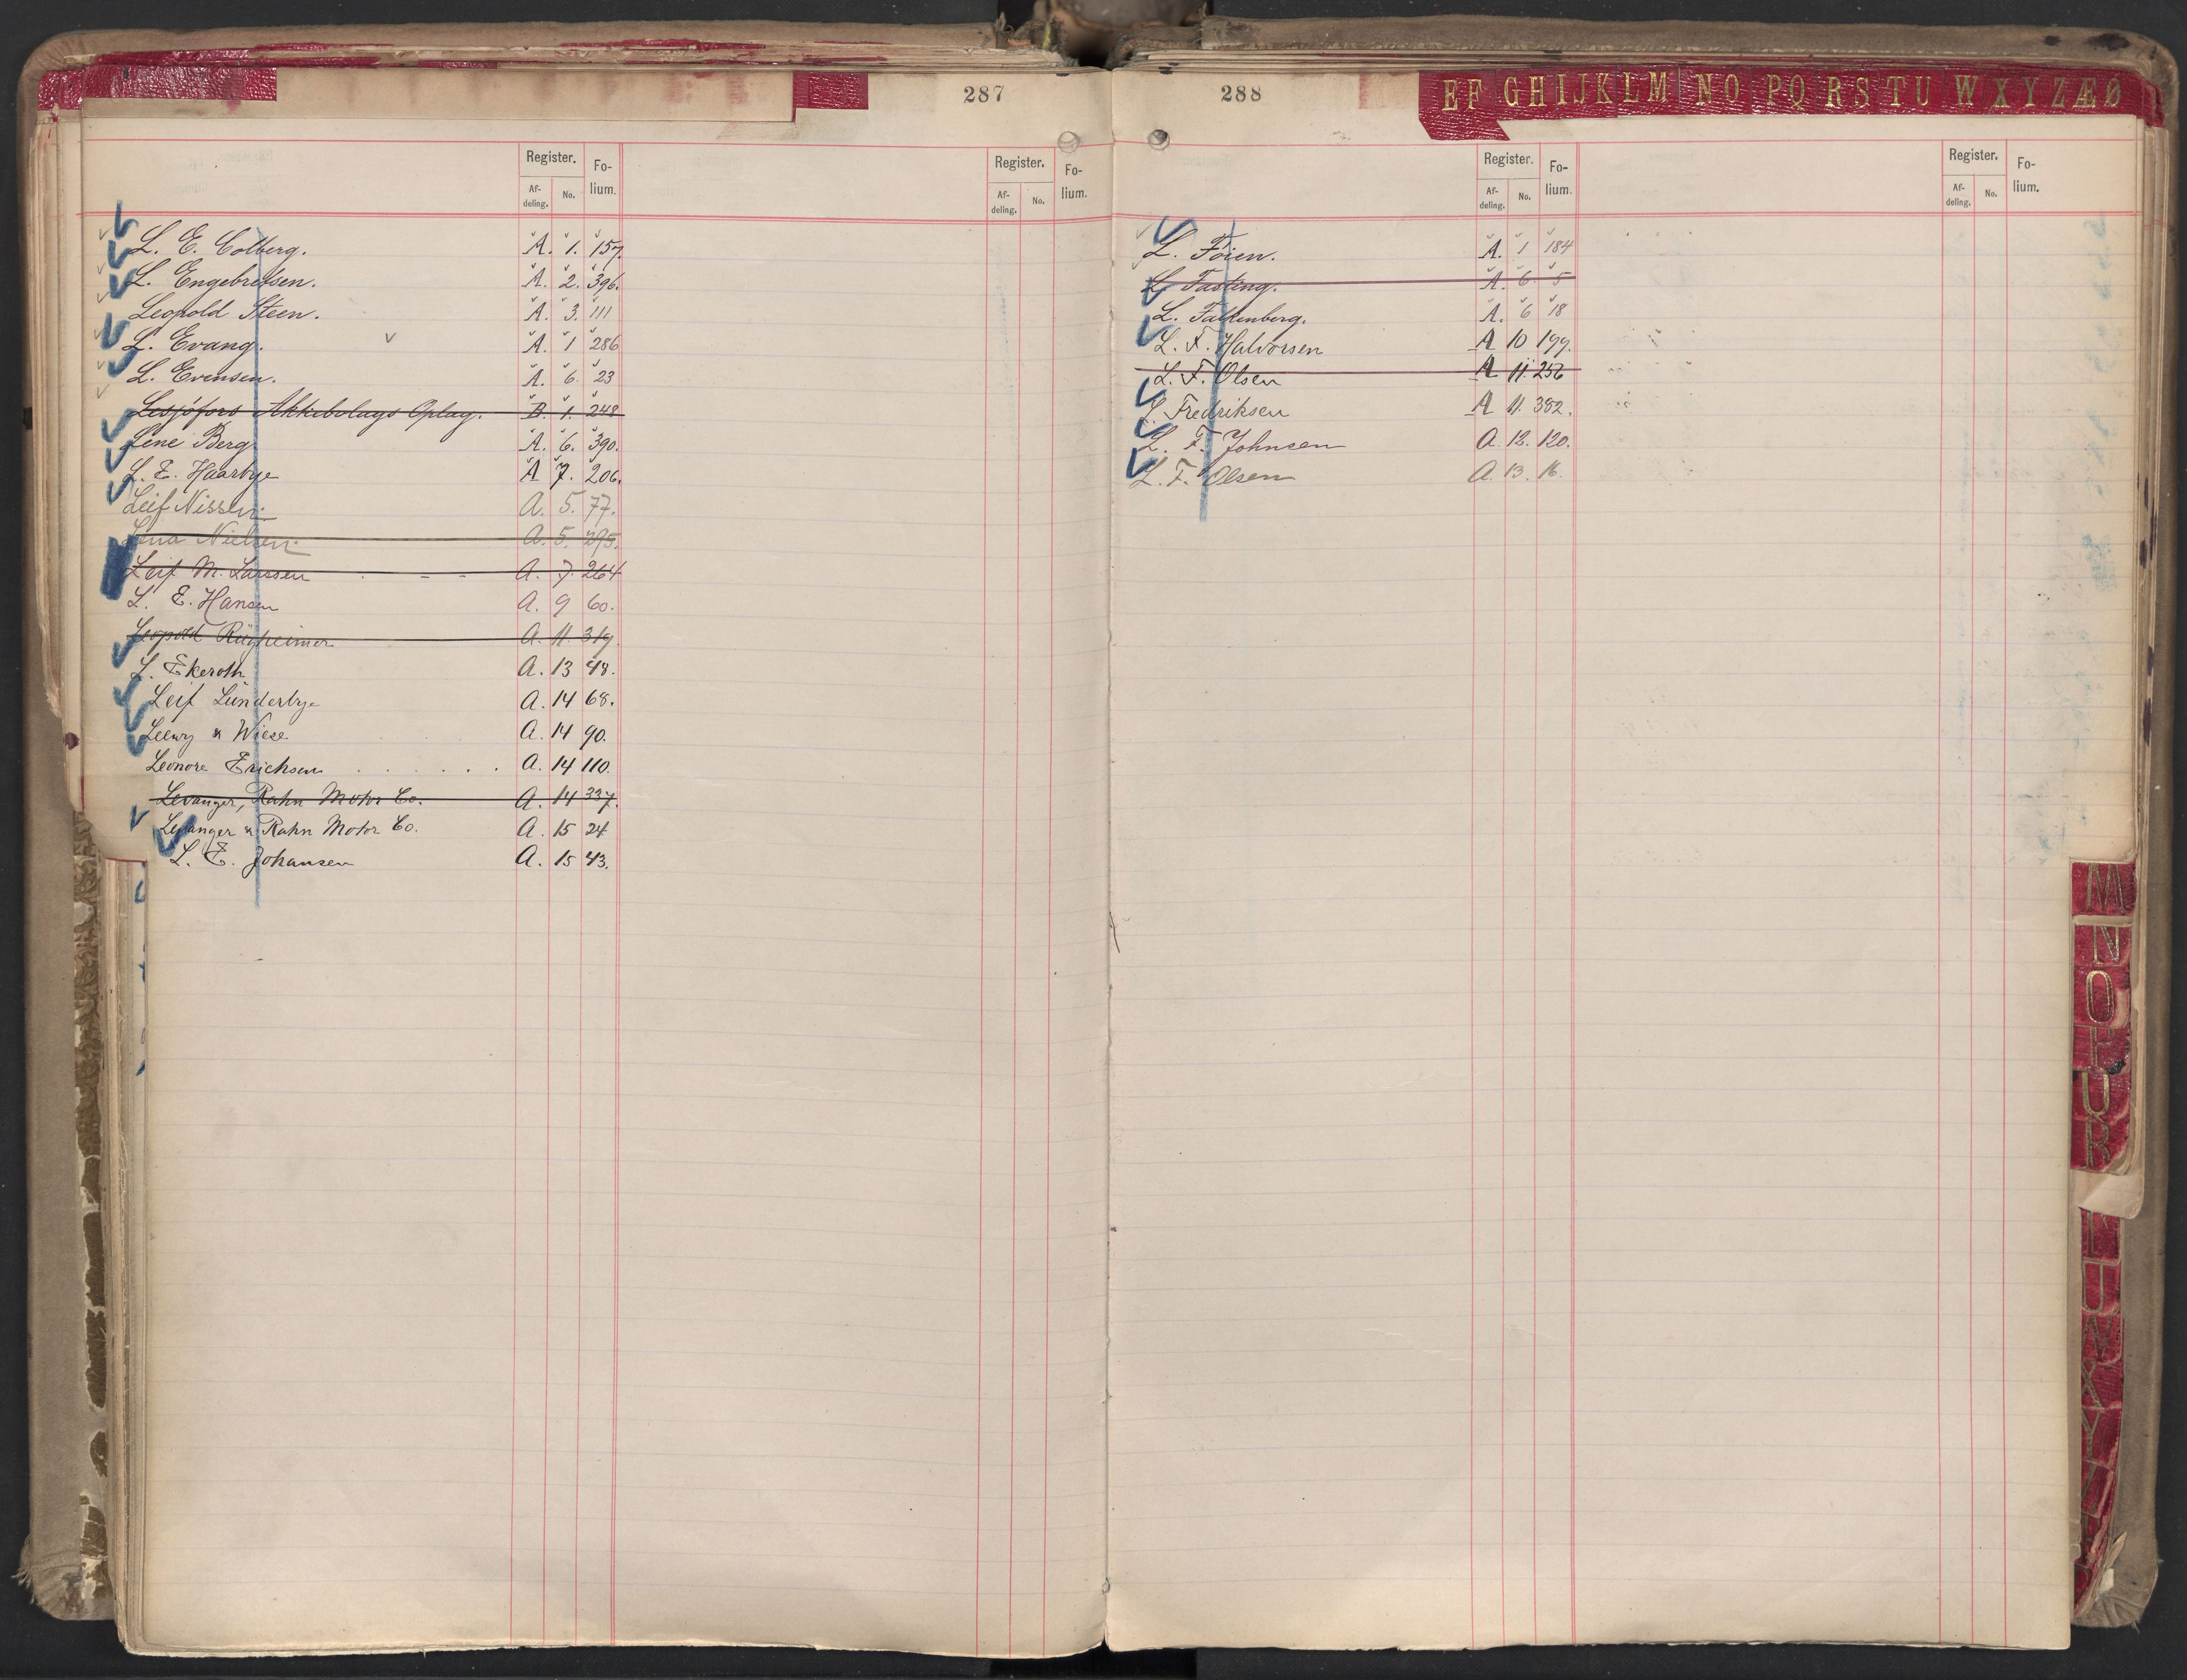 287
Register. Fo-lium.
Af-deling. No.
Register. Fo-lium.
Af-deling. No.
L. E. Colberg. A. 1. 157.
L. Engebretsen. A. 2. 396.
Leopold Steen. A. 3. 111
L. Evang. A. 1 286
L. Evensen. A. 6. 23
Lesjöfors Aktiebolags Oplag. B. 1. 248
Lene Berg A. 6. 390.
L. E. Haarbye A 7. 206.
Leif Nissen. A. 5. 77.
Lena Nielsen. A. 5. 295.
Leif M. Larssen A. 7. 264
L. E. Hansen A. 9 60.
Leopold Rügheimer A. 11. 319.
L. Ekeroth A. 13 48.
Leif Lunderbye A. 14 68.
Leewy & Wiese. A. 14 90.
Leonore Erichsen A. 14 110.
Levanger, Rahn Motor Co. A. 14 337.
Levanger & Rahn Motor Co. A. 15 24
L. E. Johansen A. 15 43.
288
E F G H I J K L M N O P Q R S T U W X Y Z Æ Ø
Register. Fo-lium.
Af-deling. No.
Register. Fo-lium.
Af-deling. No.
L. Föien. A. 1 184
L. Fasting. A. 6 5
L. Falkenberg. A. 6 18
L. F. Halvorsen A 10 199.
L. F. Olsen A 11. 256
L. Fredriksen A 11. 382.
L. F. Johnsen A. 12. 120.
L. F. Olsen A. 13. 16.
M
N
O
P
R
U
W
X
Y